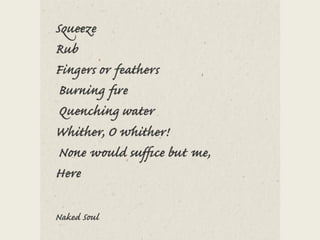 Squeeze
Rub
Fingers or feathers
Burning fire
Quenching water
Whither, O whither!
None would suffice but me,
Here
Naked Soul